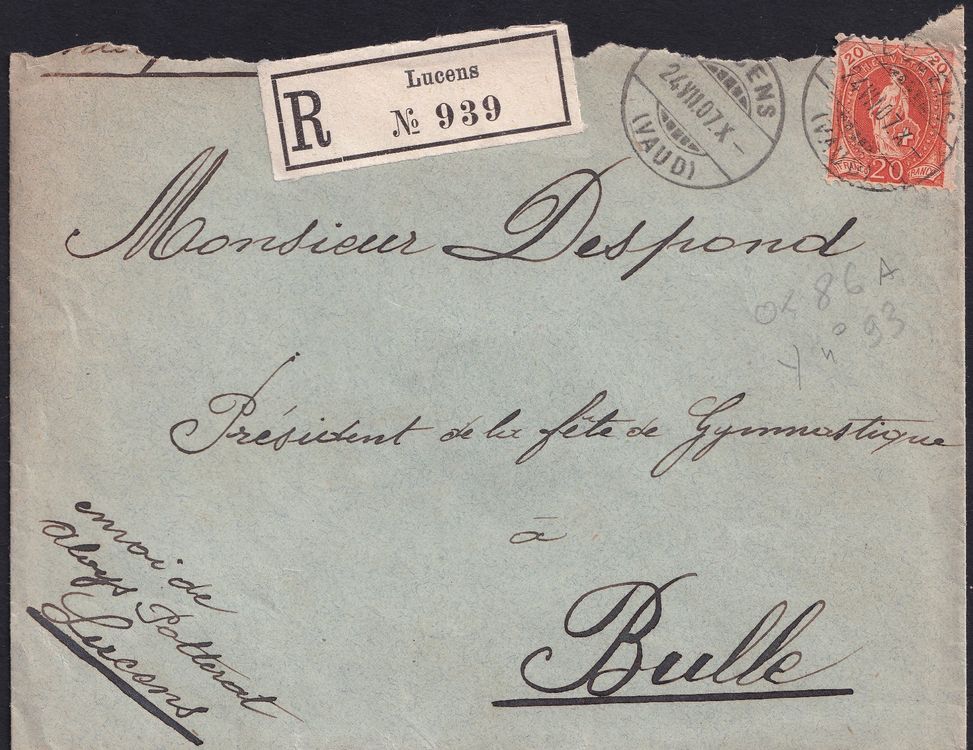 Lucens
R
№ 939
LUCENS
24.VII.07.X-
(VAUD)
20 20
20
FRANCO
Monsieur Despond
Président de la fête de Gymnastique
à
Bulle
envoi de
Aloys Potterat
Lucens
86 A
93